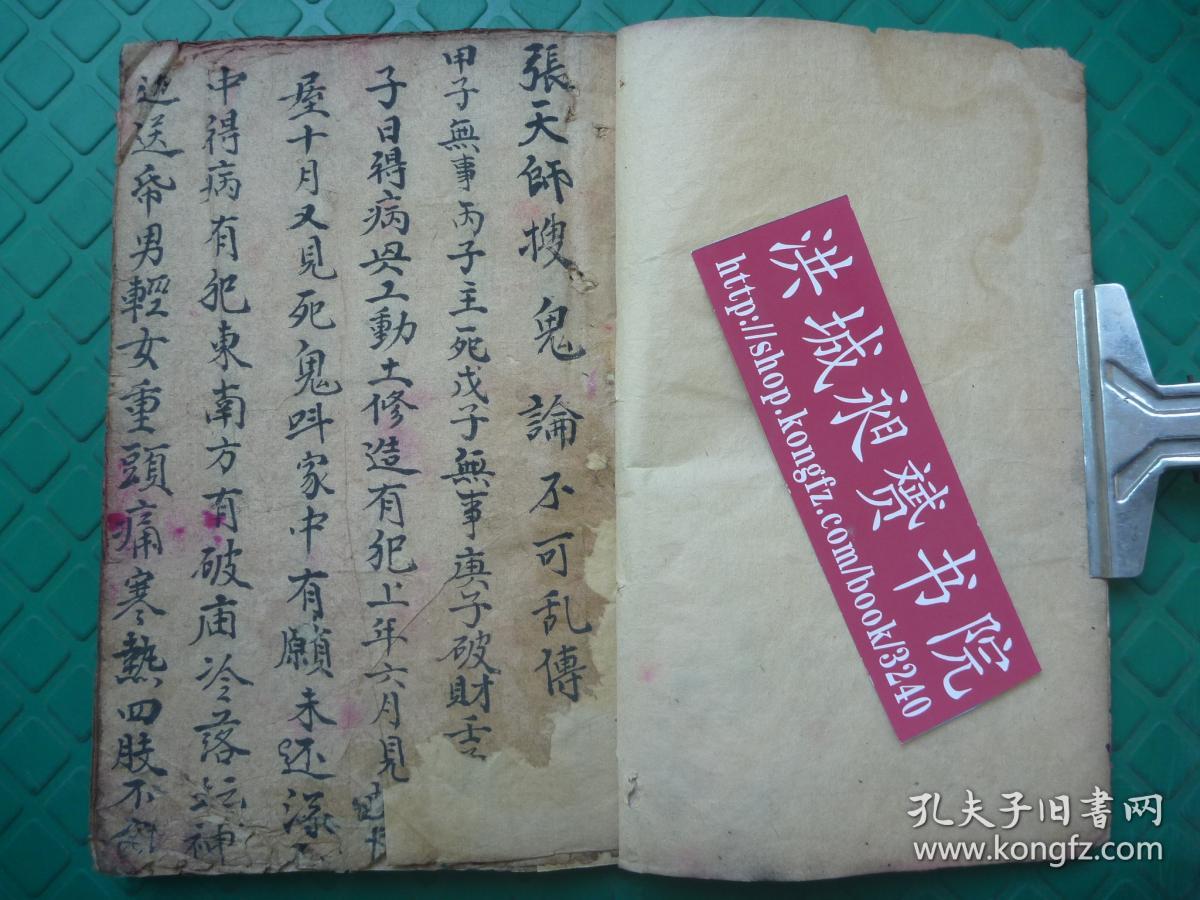 張天師搜鬼論不可乱傳
甲子無事丙子主死戊子無事庚子破財舌
子日得病與工動土修造有犯上年六月見
屋十月又見死鬼叫家中有願未还
中得病有犯東南方有破庙冷落坛神
送男輕女重頭痛寒熱四肢不
洪城昶赟书院
http://shop.kongfz.com/book/3240
孔夫子旧书网
www.kongfz.com